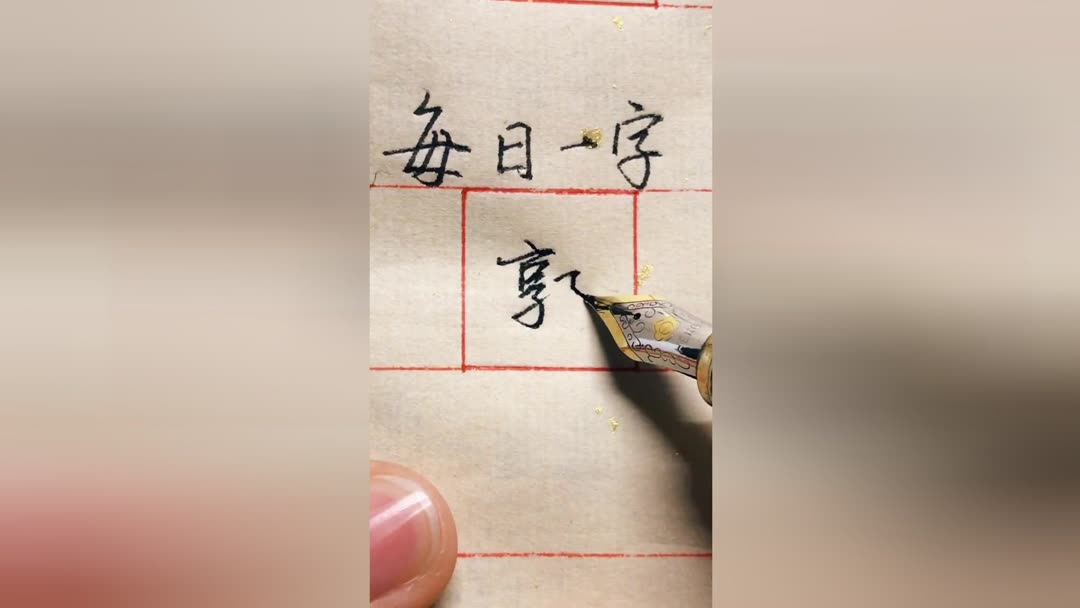 每日一字
郭